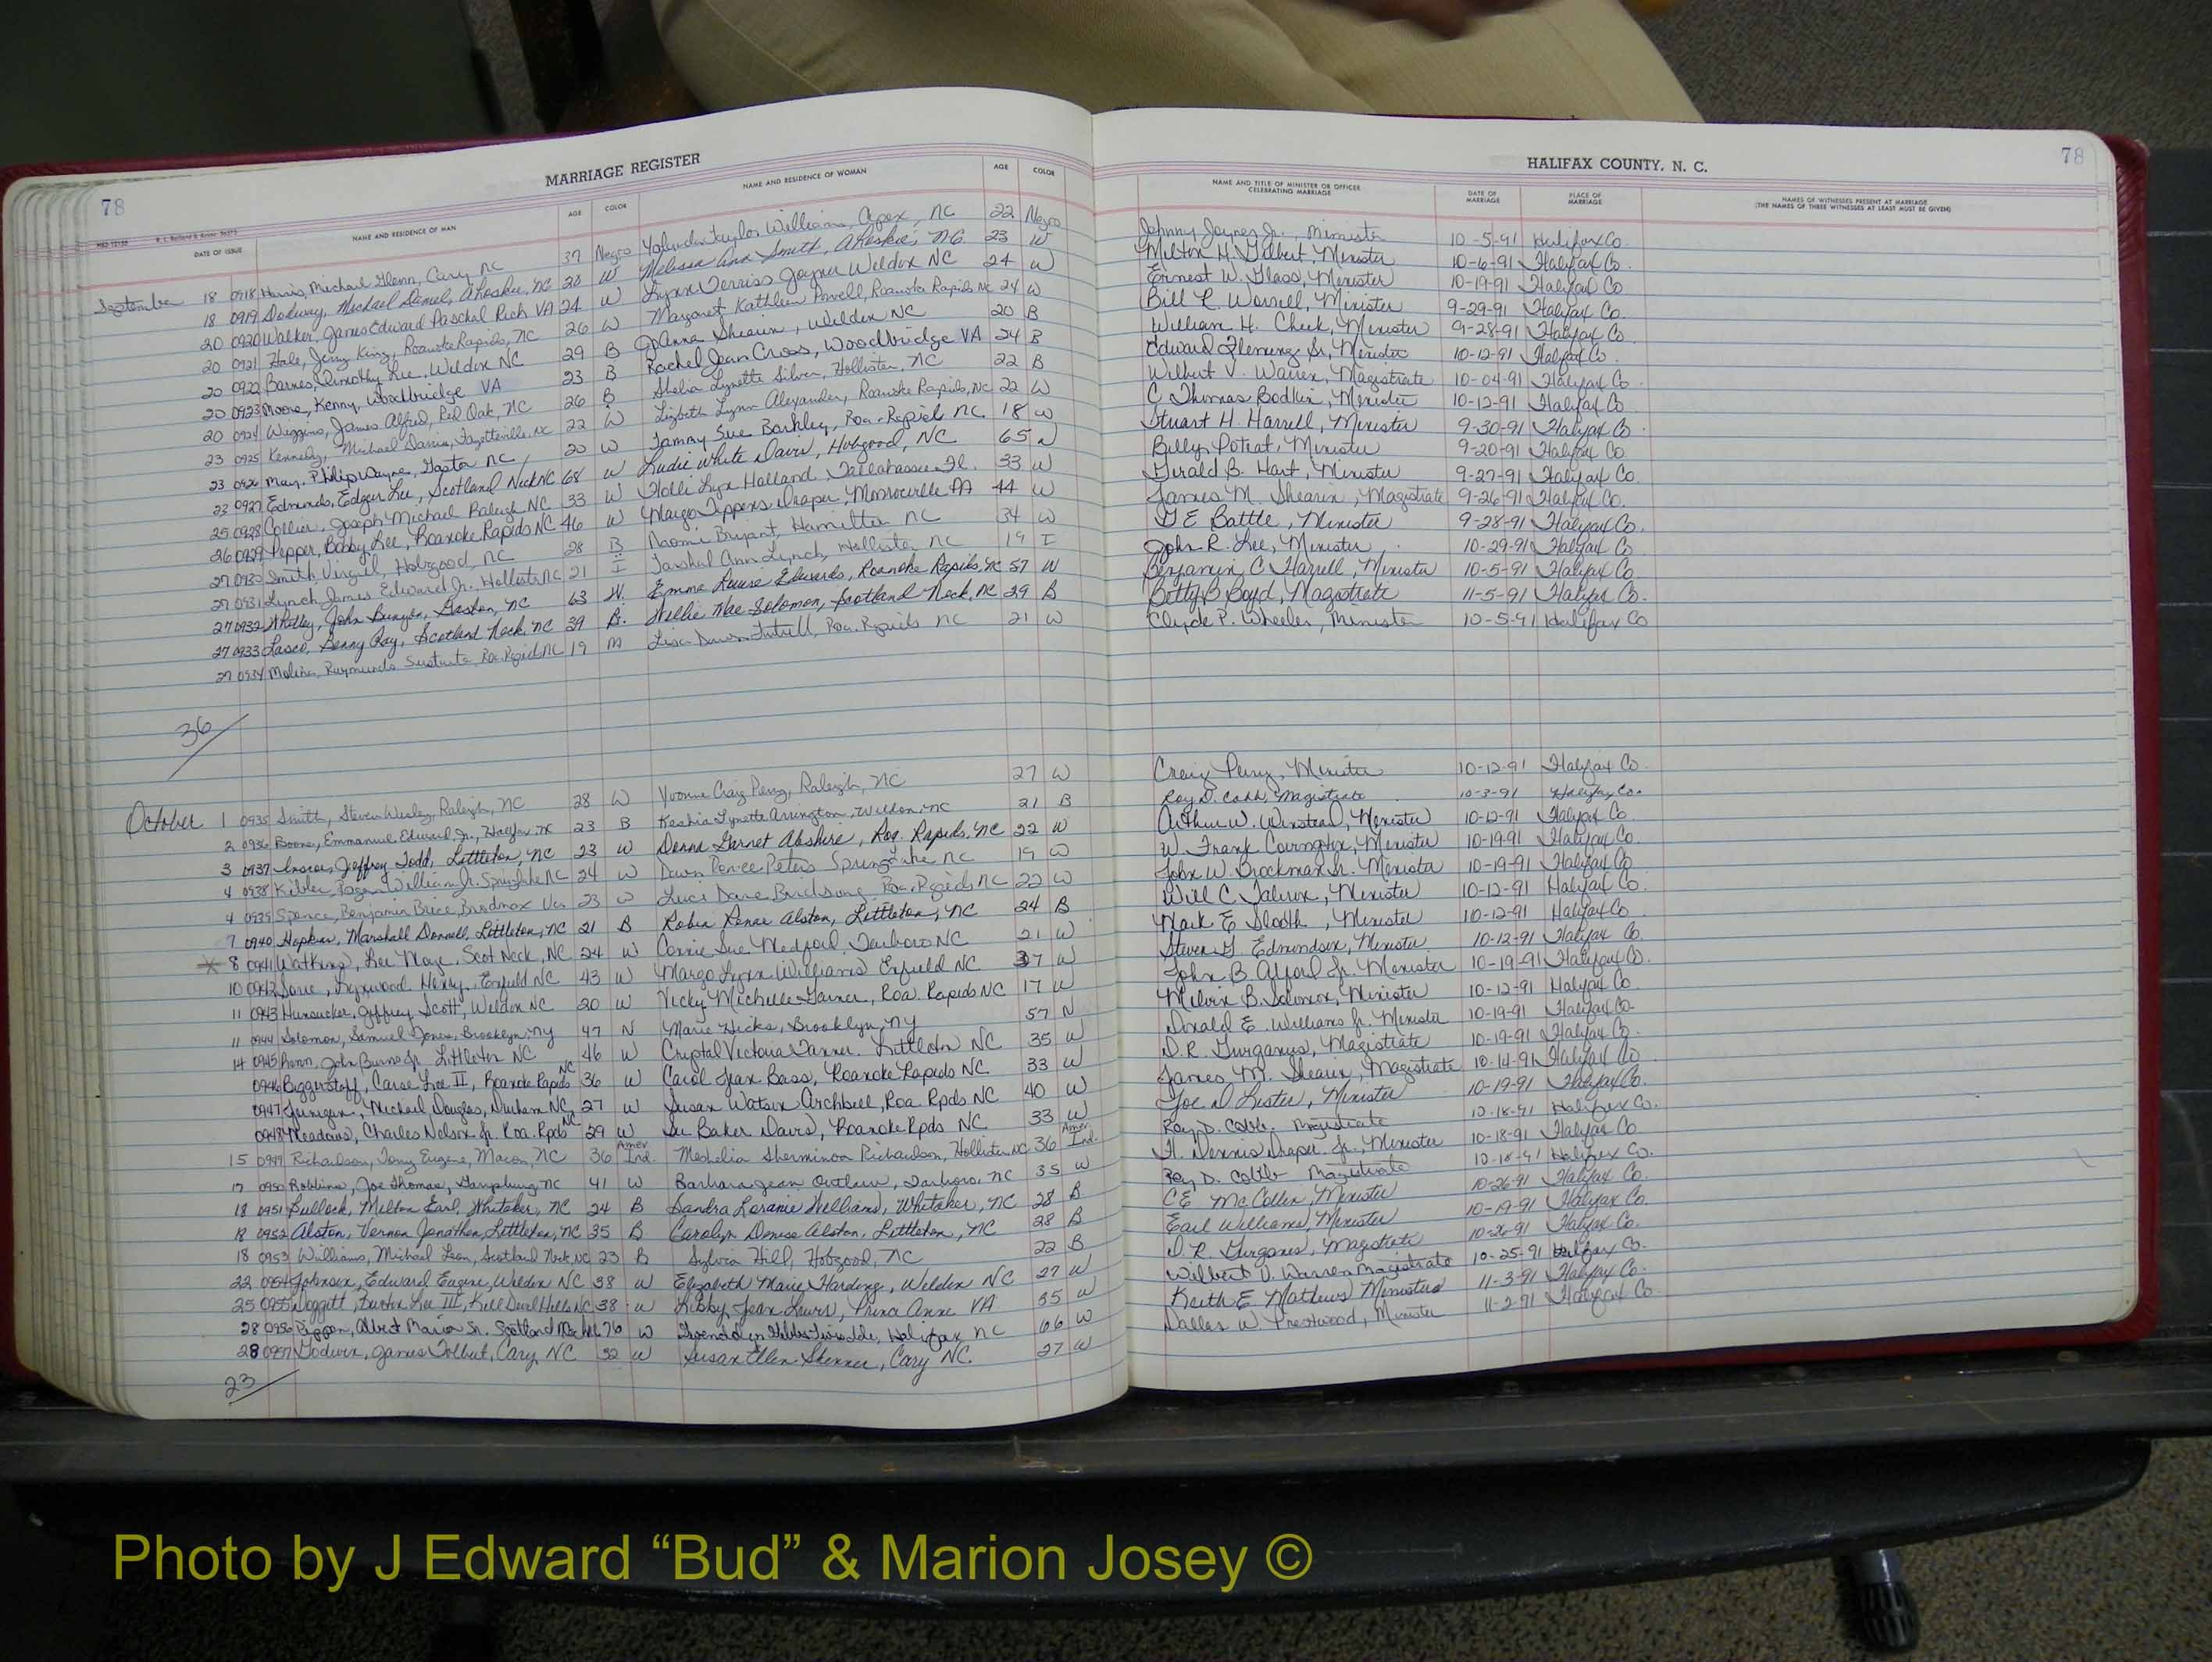 MARRIAGE REGISTER
HALIFAX COUNTY, N. C.
78
78
DATE OF ISSUE NAME AND RESIDENCE OF MAN AGE COLOR NAME AND RESIDENCE OF WOMAN AGE COLOR NAME AND TITLE OF MINISTER OR OFFICER CELEBRATING MARRIAGE DATE OF MARRIAGE PLACE OF MARRIAGE NAMES OF WITNESSES PRESENT AT MARRIAGE (THE NAMES OF THREE WITNESSES AT LEAST MUST BE GIVEN)
September 18 0918 Harris, Michael Glenn, Cary NC 37 Negro Yolanda Taylor Williams, Apex, NC 22 Negro Johnny Joyner Jr., Minister 10-5-91 Halifax Co.
18 0919 Michael Daniel, Ahoskie, NC 28 W Melissa Ann Smith, Ahoskie, NC 23 W Milton H. Gilbert, Minister 10-6-91 Halifax Co.
20 0920 Walker, James Edward Paschal Rich VA 24 W Lynn Joyner Weldon NC 24 W Ernest W. Glass, Minister 10-19-91 Halifax Co
20 0921 Hale, Jerry King, Roanoke Rapids, NC 26 W Margaret Kathleen Powell, Roanoke Rapids NC 24 W Bill R. Worrell, Minister 9-29-91 Halifax Co.
20 0922 Barnes, Timothy Lee, Weldon NC 29 B JoAnna Shearin, Weldon NC 20 B William H. Cheek, Minister 9-28-91 Halifax Co.
20 0923 Moore, Kenny, Woodbridge VA 23 B Rachel Jean Cross, Woodbridge VA 24 B Edward Fleming Sr, Minister 10-12-91 Halifax Co.
20 0924 Wiggins, James Alfred, Red Oak, NC 26 B Shelia Lynette Silver, Hollister, NC 22 B Wilbert V. Warren, Magistrate 10-04-91 Halifax Co.
23 0925 Kennedy, Michael Darrin, Fayetteville, NC 22 W Lizbeth Lynn Alexander, Roanoke Rapids, NC 22 W C Thomas Bodkin, Minister 10-12-91 Halifax Co
23 0926 May, Philip Wayne, Gaston NC 20 W Tammy Sue Barkley, Roa. Rapid NC 18 W Stuart H. Harrell, Minister 9-30-91 Halifax Co.
23 0927 Edmonds, Edgar Lee, Scotland Neck NC 68 W Ludie White Davis, Hobgood, NC 65 W Billy Poteat, Minister 9-20-91 Halifax Co.
25 0928 Collier, Joseph Michael Raleigh NC 33 W Holli Lyn Holland, Tallahassee Fl. 33 W Gerald B. Hart, Minister 9-27-91 Halifax Co.
26 0929 Pepper, Bobby Lee, Roanoke Rapids NC 46 W Margo Draper, Monroeville PA 44 W James M. Shearin, Magistrate 9-26-91 Halifax Co.
27 0930 Smith, Virgil, Hobgood, NC 28 B Naomi Bryant, Hamilton NC 34 W G E Battle, Minister 9-28-91 Halifax Co.
27 0931 Lynch, James Edward Jr. Hollister NC 21 I Ann Lynch, Hollister, NC 19 I John R. Lee, Minister 10-29-91 Halifax Co
27 0932 Whitley, John Gaston, NC 63 W. Emma Louise Edwards, Roanoke Rapids, NC 57 W Benjamin C Harrell, Minister 10-5-91 Halifax Co.
27 0933 Benny Ray, Scotland Neck, NC 39 B. Willie Mae Solomon, Scotland Neck, NC 29 B Betty B Boyd, Magistrate 11-5-91 Halifax Co.
27 0934 Molina, Raymundo Roa. Rapid NC 19 M Lisa Dawn Roa. Rapids NC 21 W Clyde P. Wheeler, Minister 10-5-91 Halifax Co
36
October 1 0935 Smith, Steven Wesley, Raleigh, NC 28 W Yvonne Craig Perry, Raleigh, NC 27 W Craig Perry, Minister 10-12-91 Halifax Co.
2 0936 Boone, Emmanuel Edward Jr., Halifax NC 23 B Keshia Lynette Arrington, Weldon, NC 21 B Roy D. Cobb, Magistrate 10-3-91 Halifax Co.
3 0937 Jeffrey Todd, Littleton, NC 23 W Donna Garnet Abshire, Roa. Rapids, NC 22 W Arthur W. Winstead, Minister 10-12-91 Halifax Co.
4 0938 Roger William Jr. Spring Lake NC 24 W Dawn Peters Spring Lake NC 19 W W. Frank Covington, Minister 10-19-91 Halifax Co.
4 0939 Spence, Benjamin Brice, Brodnax Va 23 W Birdsong, Roa. Rapids NC 22 W John W. Brockman Sr. Minister 10-19-91 Halifax Co
7 0940 Hopkins, Marshall Donnell, Littleton, NC 21 B Robin Renae Alston, Littleton, NC 24 B Will C Minister 10-12-91 Halifax Co.
8 0941 Watkins, Lee Scot Neck, NC 24 W Connie Sue Medford, Tarboro NC 21 W Mark E Minister 10-12-91 Halifax Co
10 0942 Henry, Enfield NC 43 W Margo Lynn Williams Enfield NC 37 W Steven G. Edmundson, Minister 10-12-91 Halifax Co.
11 0943 Hunsucker, Jeffrey Scott, Weldon NC 20 W Vicky Michelle Garner, Roa. Rapids NC 17 W John B. Alford Jr. Minister 10-19-91 Halifax Co.
11 0944 Solomon, Samuel Jones, Brooklyn, NY 47 N Marie Hicks, Brooklyn, NY 57 N Melvin B. Solomon, Minister 10-12-91 Halifax Co.
14 0945 John Burno Jr. Littleton NC 46 W Crystal Victoria Tanner, Littleton NC 35 W Donald E. Williams Jr. Minister 10-19-91 Halifax Co.
0946 Biggerstaff, Carse Lee II, Roanoke Rapids NC 36 W Carol Jean Bass, Roanoke Rapids NC 33 W D.R. Gurganus, Magistrate 10-19-91 Halifax Co.
0947 Jernigan, Michael Douglas, Durham NC 27 W Susan Watson Archbell, Roa Rpds NC 40 W James M. Shearin, Magistrate 10-14-91 Halifax Co
0948 Meadows, Charles Nelson Jr. Roa. Rpds NC 29 W Su Baker Davis, Roanoke Rpds NC 33 W Joe D Lister, Minister 10-19-91 Halifax Co.
15 0949 Richardson, Tony Eugene, Macon, NC 36 Amer. Ind. Meshelia Sherminoa Richardson, Hollister NC 36 Amer. Ind. Roy D. Cobb, Magistrate 10-18-91 Halifax Co.
17 0950 Robbins, Joe Thomas, Garysburg, NC 41 W Barbara Jean Outlaw, Tarboro, NC 35 W H. Dennis Draper Jr., Minister 10-18-91 Halifax Co.
18 0951 Bullock, Melton Earl, Whitaker, NC 24 B Sandra Loranie Williams, Whitaker, NC 28 B Roy D. Cobb Magistrate 10-18-91 Halifax Co.
18 0952 Alston, Vernon Jonathon, Littleton, NC 35 B Carolyn Denise Alston, Littleton, NC 28 B C E McCollin, Minister 10-26-91 Halifax Co.
18 0953 Williams, Michael Leon, Scotland Neck NC 23 B Sylvia Hill, Hobgood, NC 22 B Earl Williams, Minister 10-19-91 Halifax Co.
22 0954 Johnson, Edward Eugene, Weldon NC 38 W Elizabeth Marie Harding, Weldon NC 27 W D R. Gurganus, Magistrate 10-26-91 Halifax Co.
25 0955 Doggett, Lee III, Kill Devil Hills NC 38 W Libby Jean Lewis, Princ Anne VA 35 W Wilbert V. Warren Magistrate 10-25-91 Halifax Co.
28 0956 Albert Marion Sr. Scotland Neck NC 76 W Gwendolyn Halifax, NC 66 W Keith E Mathews Minister 11-3-91 Halifax Co.
28 0957 Godwin, James Tolbert, Cary, NC 32 W Susan Ellen Skinner, Cary NC. 27 W Dallas W. Prestwood, Minister 11-2-91 Halifax Co.
23
Photo by J Edward “Bud” & Marion Josey ©